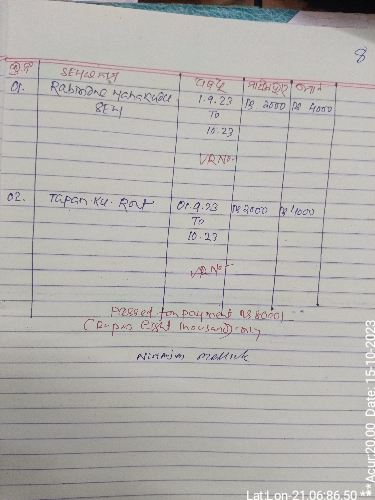 8
01. Rabindra Mahakud 1.9.23 Rs 2000 Rs 4000
SEM To
10.23
VR No.
02. Tapan Ku. Rout 01.9.23 Rs 2000 Rs 4000
To
10.23
VR No
Passed for payment Rs 8000/-
(Rupees Eight thousand) only
Lat Lon-21.06:86.50 **Acur:20.00 Date: 15-10-2023